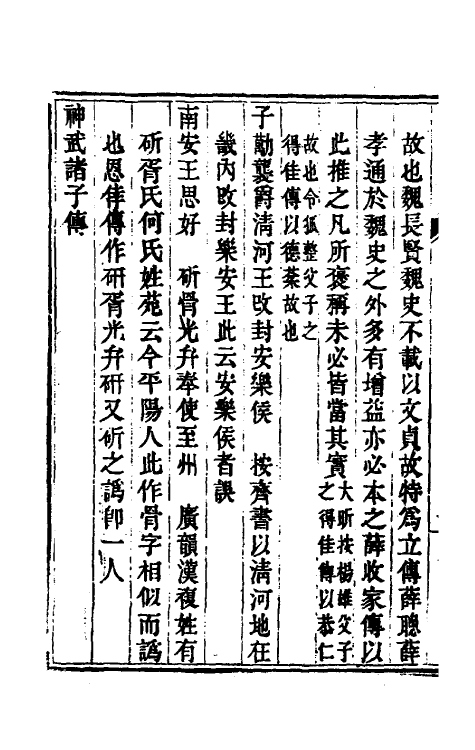 故也魏長賢魏史不載以文貞故特爲立傳薛聰薛
孝通於魏史之外多有增益亦必本之薛收家傳以
此推之凡所褒稱未必皆當其實大昕按楊雄父子
之得佳傳以恭仁
故也令狐整父子之
得佳傳以德棻故也
子勱襲爵清河王改封安樂侯　按齊書以清河地在
畿内改封樂安王此云安樂侯者誤
南安王思好　斫骨光弁奉使至州　廣韻漢複姓有
斫胥氏何氏姓苑云今平陽人此作骨字相似而譌
也恩倖傳作研胥光弁研又斫之譌卽一人
神武諸子傳